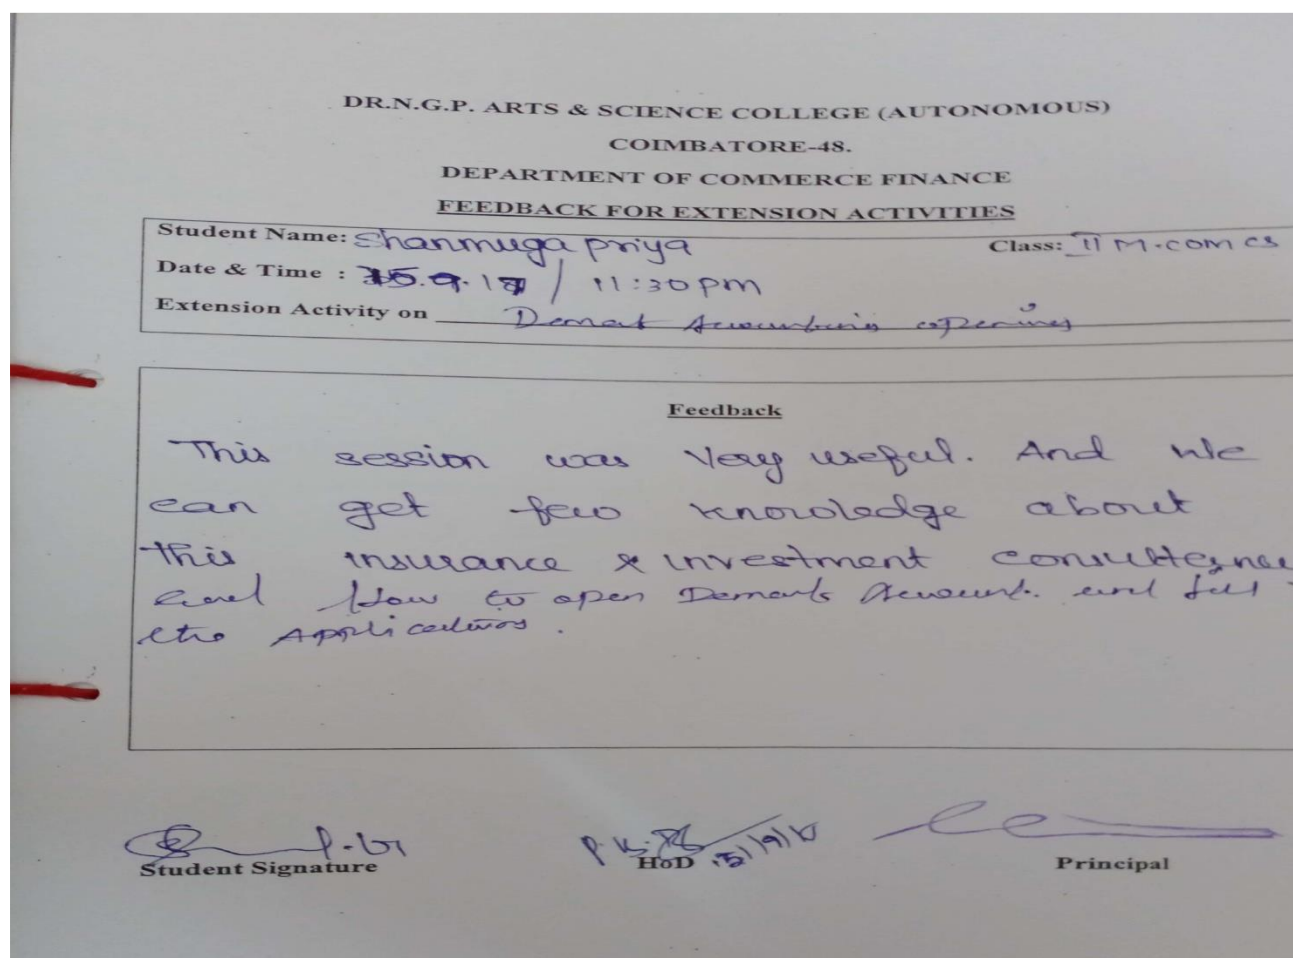 DR.N.G.P. ARTS & SCIENCE COLLEGE (AUTONOMOUS)
COIMBATORE-48.
DEPARTMENT OF COMMERCE FINANCE
FEEDBACK FOR EXTENSION ACTIVITIES
Student Name: Shanmuga priya Class: II M.com CS
Date & Time : 15.9.17 / 11:30 pm
Extension Activity on Demat
Feedback
This session was Very useful. And We
can get few knowledge about
this insurance & investment
and How to open Account. and fill
the
Student Signature HoD Principal